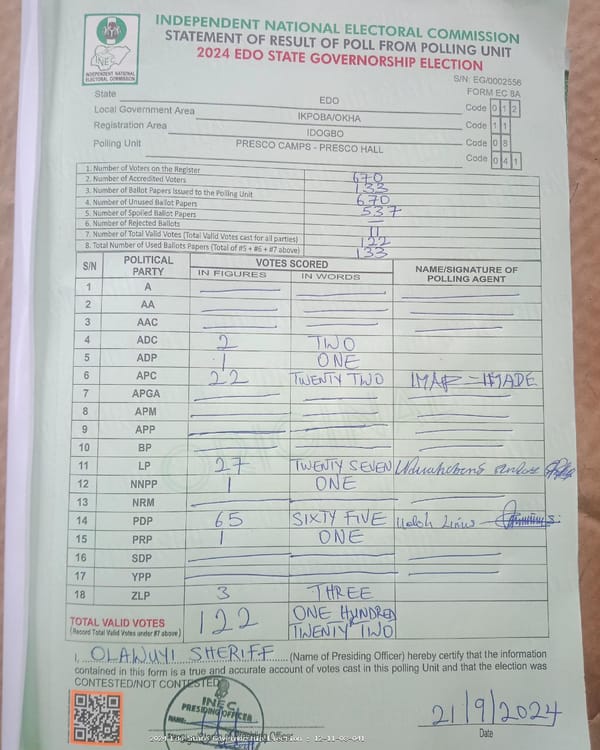 INDEPENDENT NATIONAL ELECTORAL COMMISSION
STATEMENT OF RESULT OF POLL FROM POLLING UNIT
2024 EDO STATE GOVERNORSHIP ELECTION
INEC
INDEPENDENT NATIONAL ELECTORAL COMMISSION
S/N: EG/0002556
FORM EC 8A
State EDO Code 0 1 2
Local Government Area IKPOBA/OKHA Code 1 1
Registration Area IDOGBO Code 0 8
Polling Unit PRESCO CAMPS - PRESCO HALL Code 0 4 1
1. Number of Voters on the Register 670
2. Number of Accredited Voters 133
3. Number of Ballot Papers Issued to the Polling Unit 670
4. Number of Unused Ballot Papers 537
5. Number of Spoiled Ballot Papers —
6. Number of Rejected Ballots 11
7. Number of Total Valid Votes (Total Valid Votes cast for all parties) 122
8. Total Number of Used Ballots Papers (Total of #5 + #6 + #7 above) 133
S/N POLITICAL PARTY VOTES SCORED NAME/SIGNATURE OF POLLING AGENT
IN FIGURES IN WORDS
1 A
2 AA
3 AAC
4 ADC 2 TWO
5 ADP 1 ONE
6 APC 22 TWENTY TWO
7 APGA
8 APM
9 APP
10 BP
11 LP 27 TWENTY SEVEN
12 NNPP 1 ONE
13 NRM
14 PDP 65 SIXTY FIVE
15 PRP 1 ONE
16 SDP
17 YPP
18 ZLP 3 THREE
TOTAL VALID VOTES 122 ONE HUNDRED TWENTY TWO
(Record Total Valid Votes under #7 above)
I, OLAWUYI SHERIFF (Name of Presiding Officer) hereby certify that the information
contained in this form is a true and accurate account of votes cast in this polling Unit and that the election was
CONTESTED/NOT CONTESTED
INEC
PRESIDING OFFICER
NAME:
21/9/2024
Date